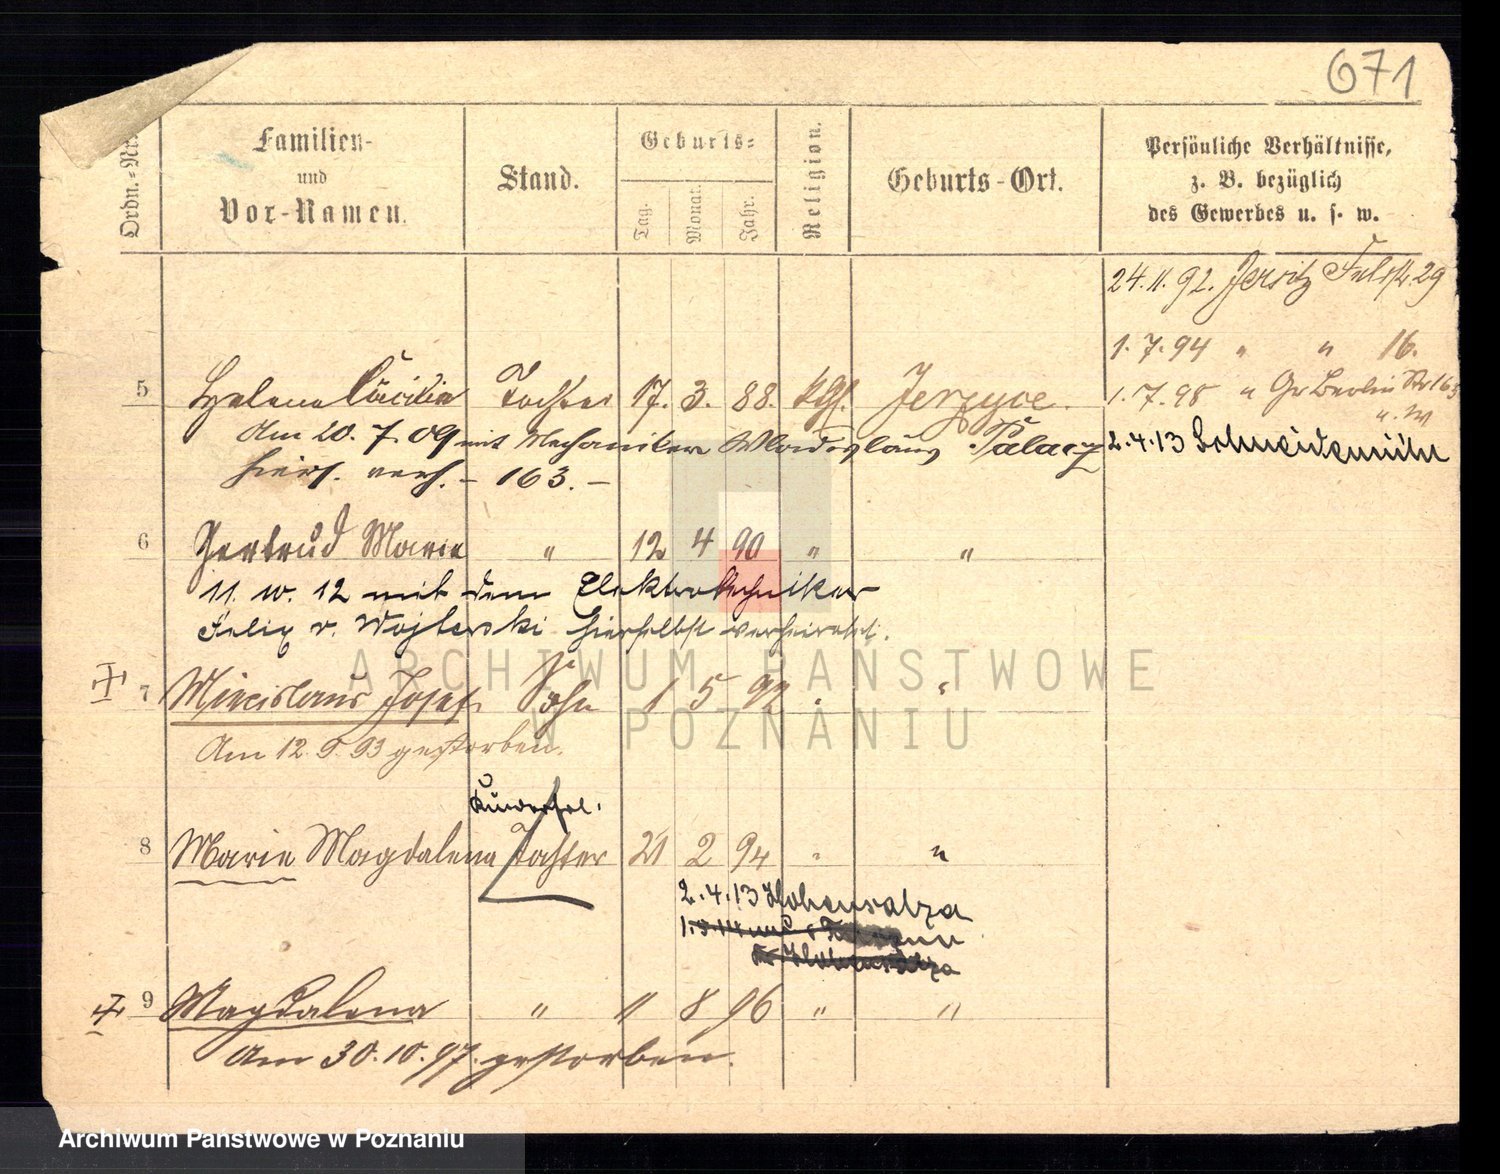 671
Ordn.-Nr.
Familien-
und
Vor-Namen.
Stand.
Geburts-
Tag.
Monat.
Jahr.
Religion.
Geburts-Ort.
Persönliche Verhältnisse,
z. B. bezüglich
des Gewerbes u. s. w.
24.11.92. Jersitz Feldstr 29
1.7.94 " " 16.
5 Helena Cäcilia Tochter 17. 3. 88. kath. Jerzyce. 1.7.98 " Gr Berlin Str 163
u. W
Am 20.7.09 mit Mechaniker Wladislaus Palacz 2.4.13 Schneidemühl
hiers. verh. – 163. –
6 Gertrud Marie " 12 4 90 " "
11. 10. 12 mit dem Elektrotechniker
Felix v. Wojterski hierselbst verheiratet.
7 Miecislaus Josef Sohn 1 5 92 " "
Am 12.9.93 gestorben.
8 Marie Magdalena Tochter 21 2 94 " "
2.4.13 Hohensalza
Hohensalza
9 Magdalena " 11 8 96 " "
Am 30.10.97 gestorben.
ARCHIWUM PAŃSTWOWE
W POZNANIU
Archiwum Państwowe w Poznaniu